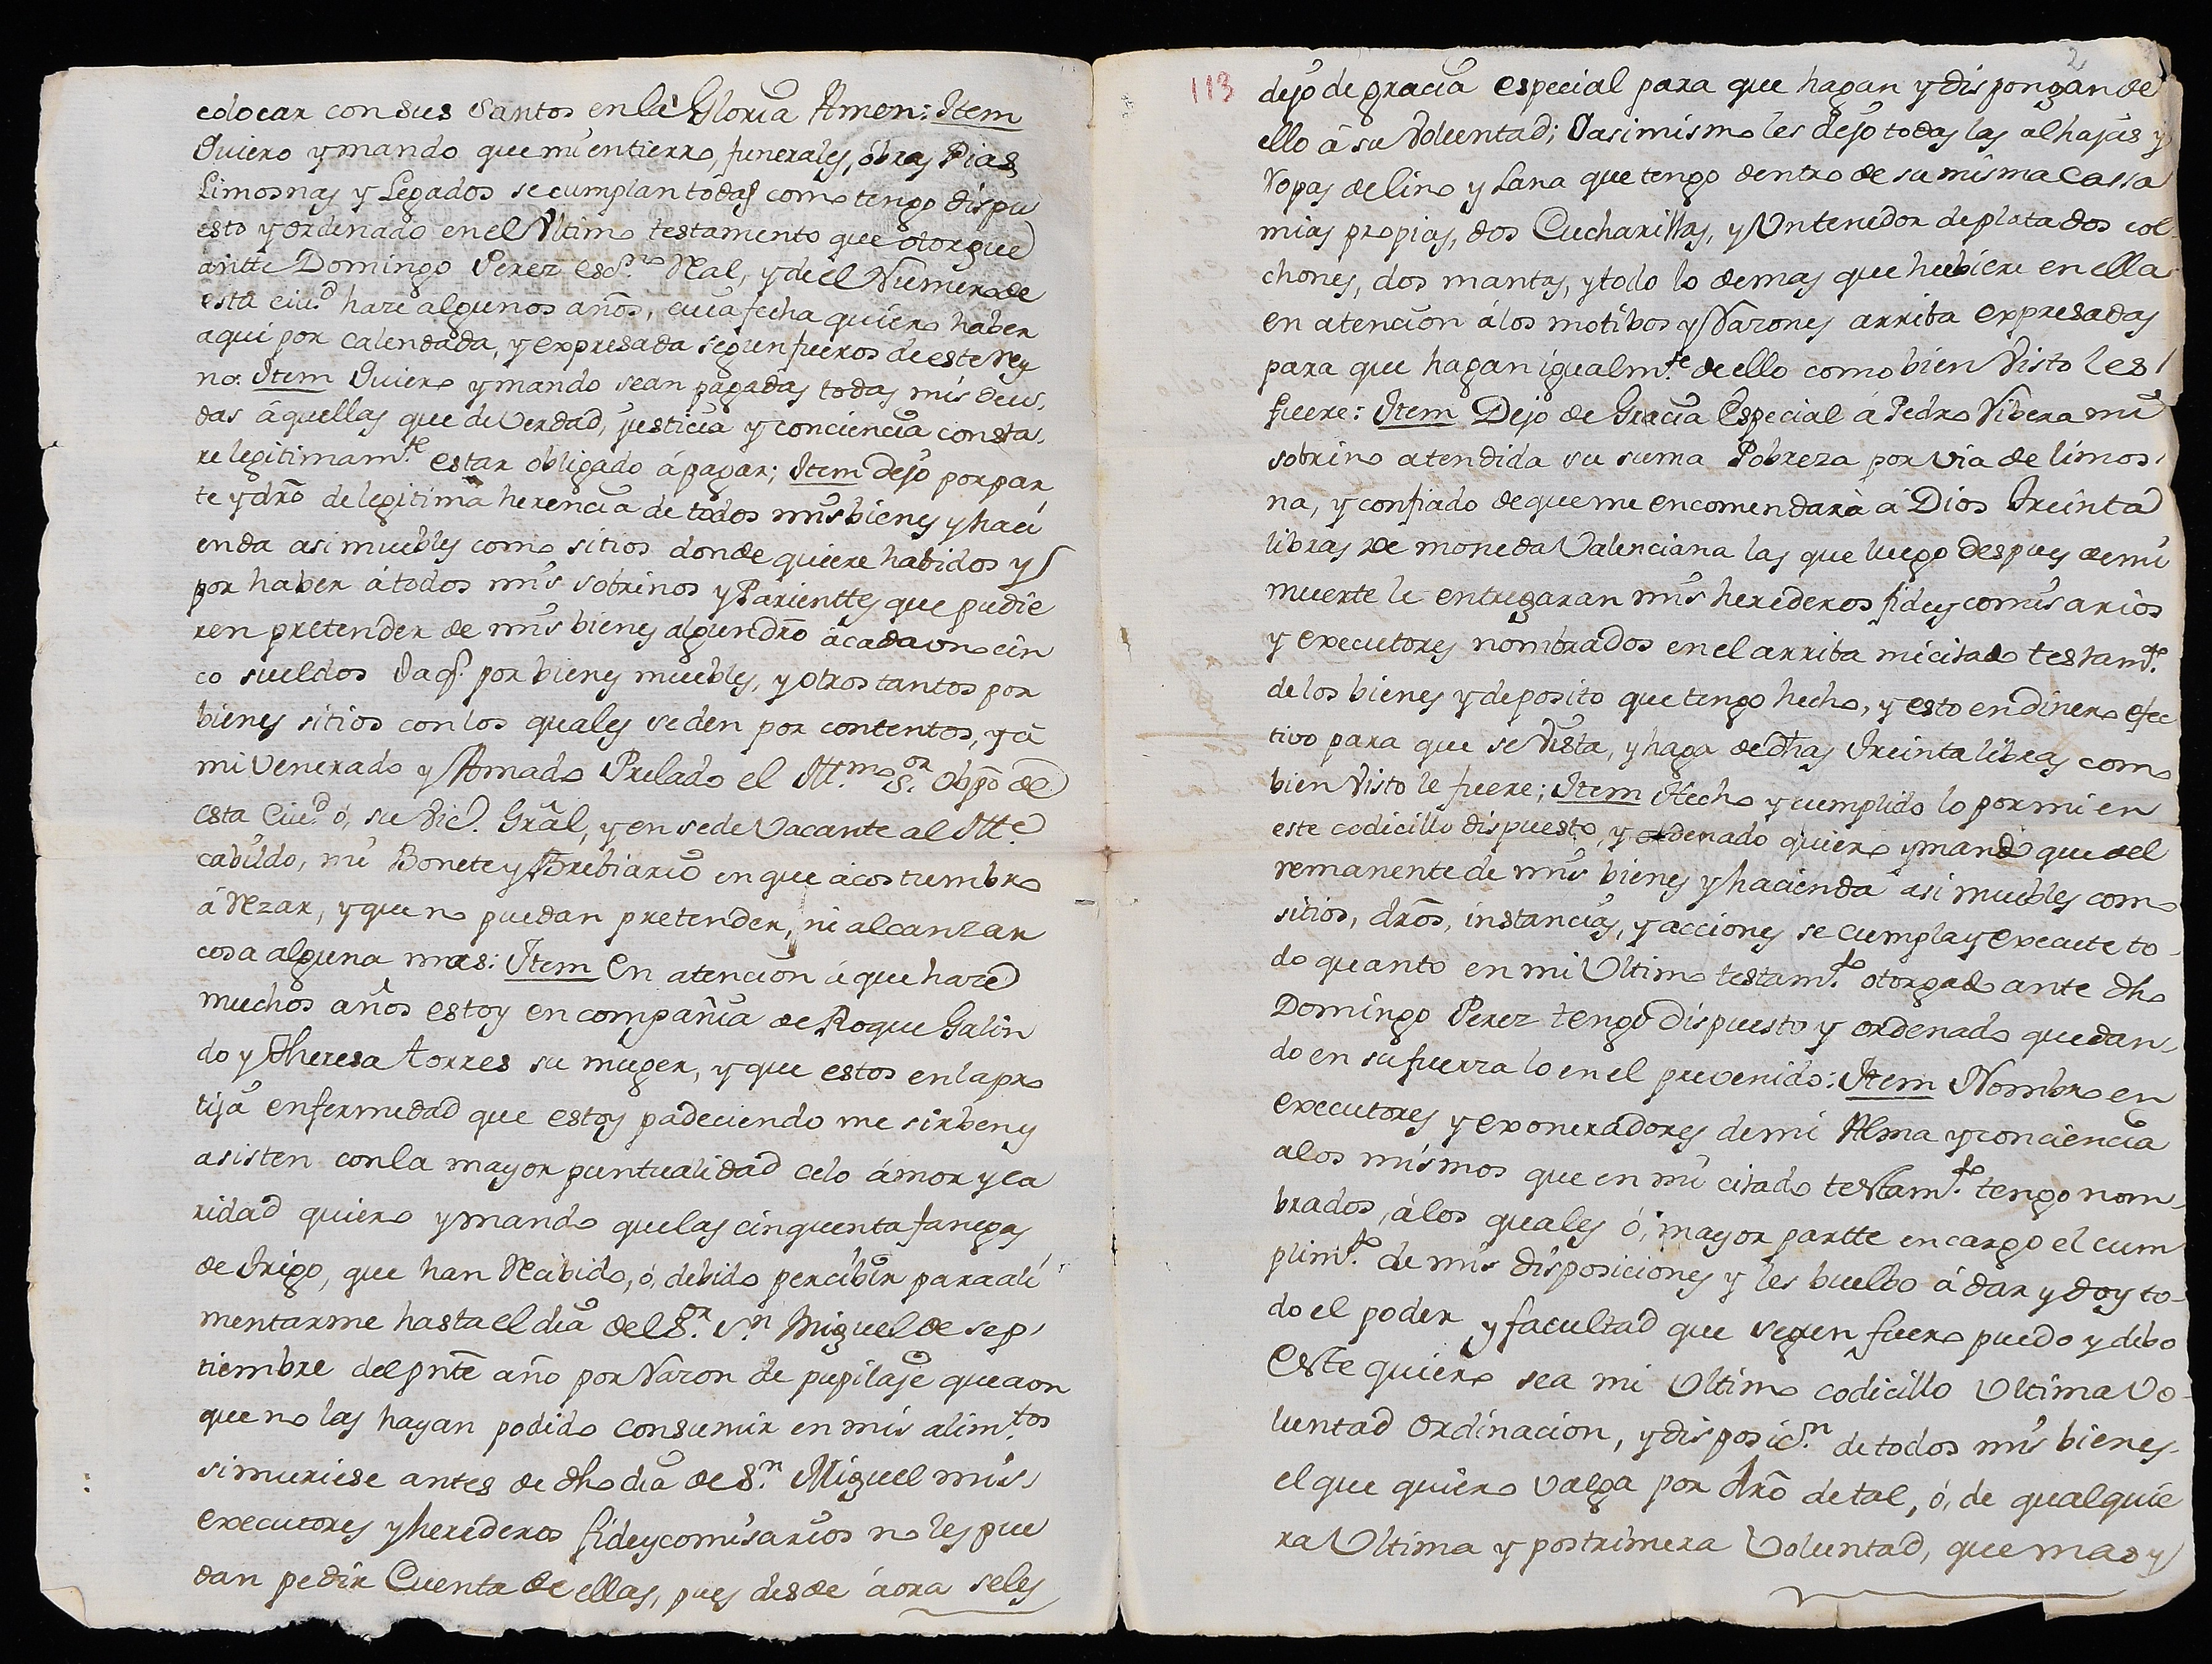 colocar con sus Santos en la Gloria Amen: Item
Quiero y mando que mi entierro, funerales, óbras Pias
Limosnas y Legados se cumplan todas como tengo dispu
esto y ordenado en el Ultimo testamento que otorgue
antte Domingo Perez esc.no Ral, y de el Numero de
esta ciu.d haze algunos años, cuia fecha quiero haber
aqui por calendada, y expresada segun fueros de este rey
no: Item Quiero y mando sean pagadas todas mis deu,
das áquellas que de Verdad, justicia y conciencia consta,
re legitimam.te estar obligado á pagar; Item dejo por par
te y dró de legitima herencia de todos mis bienes y haci
enda asi muebles como sitios donde quiere habidos y
por haber á todos mis sobrinos y Parienttes que pudie
ren pretender de mis bienes algun dró á cada uno cin
co sueldos Jaqs. por bienes muebles, y otros tantos por
bienes sitios con los quales se den por contentos, y á
mi Venerado y Amado Prelado el Ill.mo S.or Obpo de
esta Ciu.d ó, su Vic.o Grál, y en sede Vacante al Ill.e
cabildo, mi Bonete y Brebiario en que acostumbro
á Rezar, y que no puedan pretender, ni alcanzar
cosa alguna mas: Item En atencion á que haze
muchos años estoy en compañia de Roque Galin
do y Theresa torres su muger, y que estos en la pro
lija enfermedad que estoy padeciendo me sirben y
asisten con la mayor puntualidad celo ámor y ca
ridad quiero y mando que las cinquenta fanegas
de trigo, que han Recibido, ó, debido percibir para ali
mentarme hasta el dia del S.or S.n Miguel de sep,
tiembre del pnte año por razon de pupilaje que aon
que no las hayan podido consumir en mis alim.tos
si muriese antes de dho dia de S.n Miguel mis
executores y herederos fideycomisarios no les pue
dan pedir Cuenta de ellas, pues desde áora se les
113
2
dejo de gracia especial para que hagan y dispongan de
ello á su Voluntad; Y asimismo les dejo todas las alhajas y
ropas de lino y Lana que tengo dentro de su misma Cassa
mias propias, dos Cucharillas, y Un tenedor de plata dos col-
chones, dos mantas, y todo lo demas que hubiere en ella
en atencion á los motibos y Razones arriba expresadas
para que hagan igualm.te de ello como bien Visto les
fuere: Item Dejo de Gracia Especial á Pedro Ribera mi
sobrino atendida su suma Pobreza por via de limos,
na, y confiado de que me encomendará á Dios treinta
libras de moneda Valenciana las que luego despues de mi
muerte le entregaran mis herederos fideycomisarios
y executores nombrados en el arriba mi citado testam.to
de los bienes y deposito que tengo hecho, y esto en dinero efec
tivo para que se Vista, y haga de dhas treinta libras como
bien Visto le fuere; Item Hecho y cumplido lo por mi en
este codicillo dispuesto, y ordenado quiero y mando que del
remanente de mis bienes y hacienda asi muebles como
sitios, dros, instancias, y acciones se cumpla y execute to-
do quanto en mi Ultimo testam.to otorgado ante dho
Domingo Perez tengo dispuesto y ordenado quedan,
do en su fuerza lo en el prevenido: Item Nombro en
executores y exoneradores de mi Alma y conciencia
a los mismos que en mi citado testam.to tengo nom,
brados, á los quales ó, mayor partte encargo el cum
plim.to de mis disposiciones y les buelbo á dar y doy to-
do el poder y facultad que segun fuero puedo y debo
Este quiero sea mi Ultimo codicillo Ultima Vo-
luntad Ordinacion, y disposic.n de todos mis bienes
el que quiero Valga por dró de tal, ó, de qualquie
ra Ultima y postrimera Voluntad, que mas y